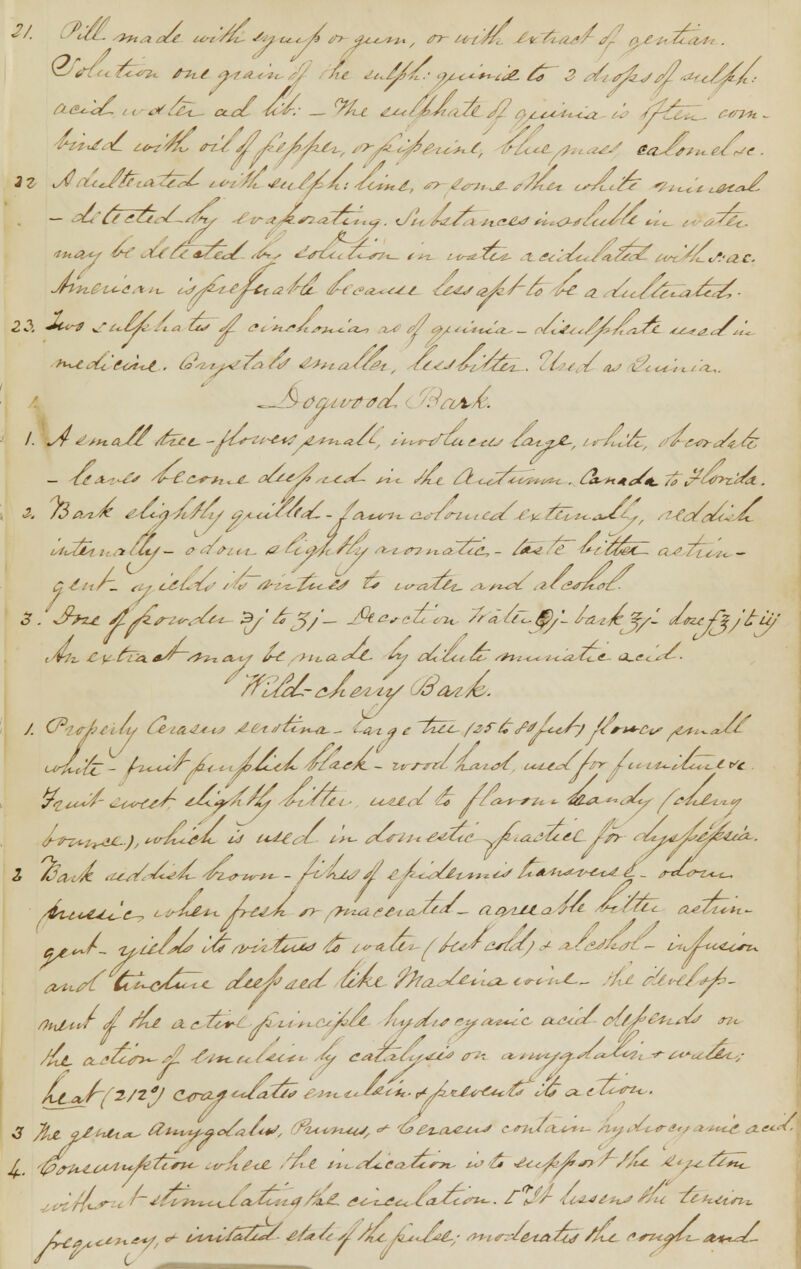 21. Pill made with syrup or gum, or with extract of gentian.
Solution one grain of the sulph: quiniæ to 2 drops of sulph:
acid water ad lib: – The sulphate of quinia is often com-
bined with oil of pepper, or piperine, blue mass, calomel &c.
22 Adulterated with sulph: lime, or some other white mineral
– detected by evaporating. Substances insoluble in water
may be detected by solution in water acidulated with s: ac.
American is preferable because less apt to be adulterated.
23. Two sulphates of cinchonia, as of quinia – disulphate used in
medicine. Crystals smaller, less bitter. Used as Quinia.
Dogwood Bark.
1. A small tree – flowers small, involucres large, white, obcordate
– leaves become deep red in the Autumn. Canada to Florida.
2. Bark slightly quilled – fawn coloured externally, reddish
internally – odour slightly aromatic – taste bitter astrin-
gent – yields its virtues to water and alcohol.
3. Dose of powder ℈j to ʒj – Decoction Water Oj – bark ℥j – dose f℥j to iij
An extract may be made by dilute muriatic acid.
Wild-cherry Bark.
1. Properly Cerasus serotina – large tree (25 to 80 feet) flower small
white – fruit purplish black – wood hard, used for furniture &c.
Fruit sweet slightly bitter, used to flavour brandy (cherry
bounce), which is used in domestic practice for dyspepsia.
2 Bark reddish brown – fibres of epidermis transverse – odour
prussic, when fresh or macerated – agreeable bitter astrin-
gent – yields its virtues to water (best cold) & alcohol – infusion
and tincture deep red like Madeira wine – the develop-
ment of the active principle hydrocyanic acid depends on
the action of emulsin by catalysis on amygdalin & water;
heat (212°) coagulates emulsin & prevents its action.
3 The genera Amygdalus, Prunus, & Cerasus contain hydrocyanic acid.
4. Consumption where the indication is to support the system
without stimulating the circulation. It lessens the tension
frequency, & irritated state of the pulse; moderates the cough and